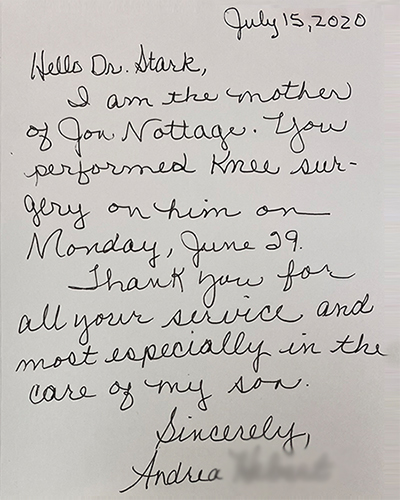 July 15, 2020
Hello Dr. Stark,
I am the mother
of Jon Nottage. You
performed Knee sur-
gery on him on
Monday, June 29.
Thank you for
all your service and
most especially in the
care of my son.
Sincerely,
Andrea